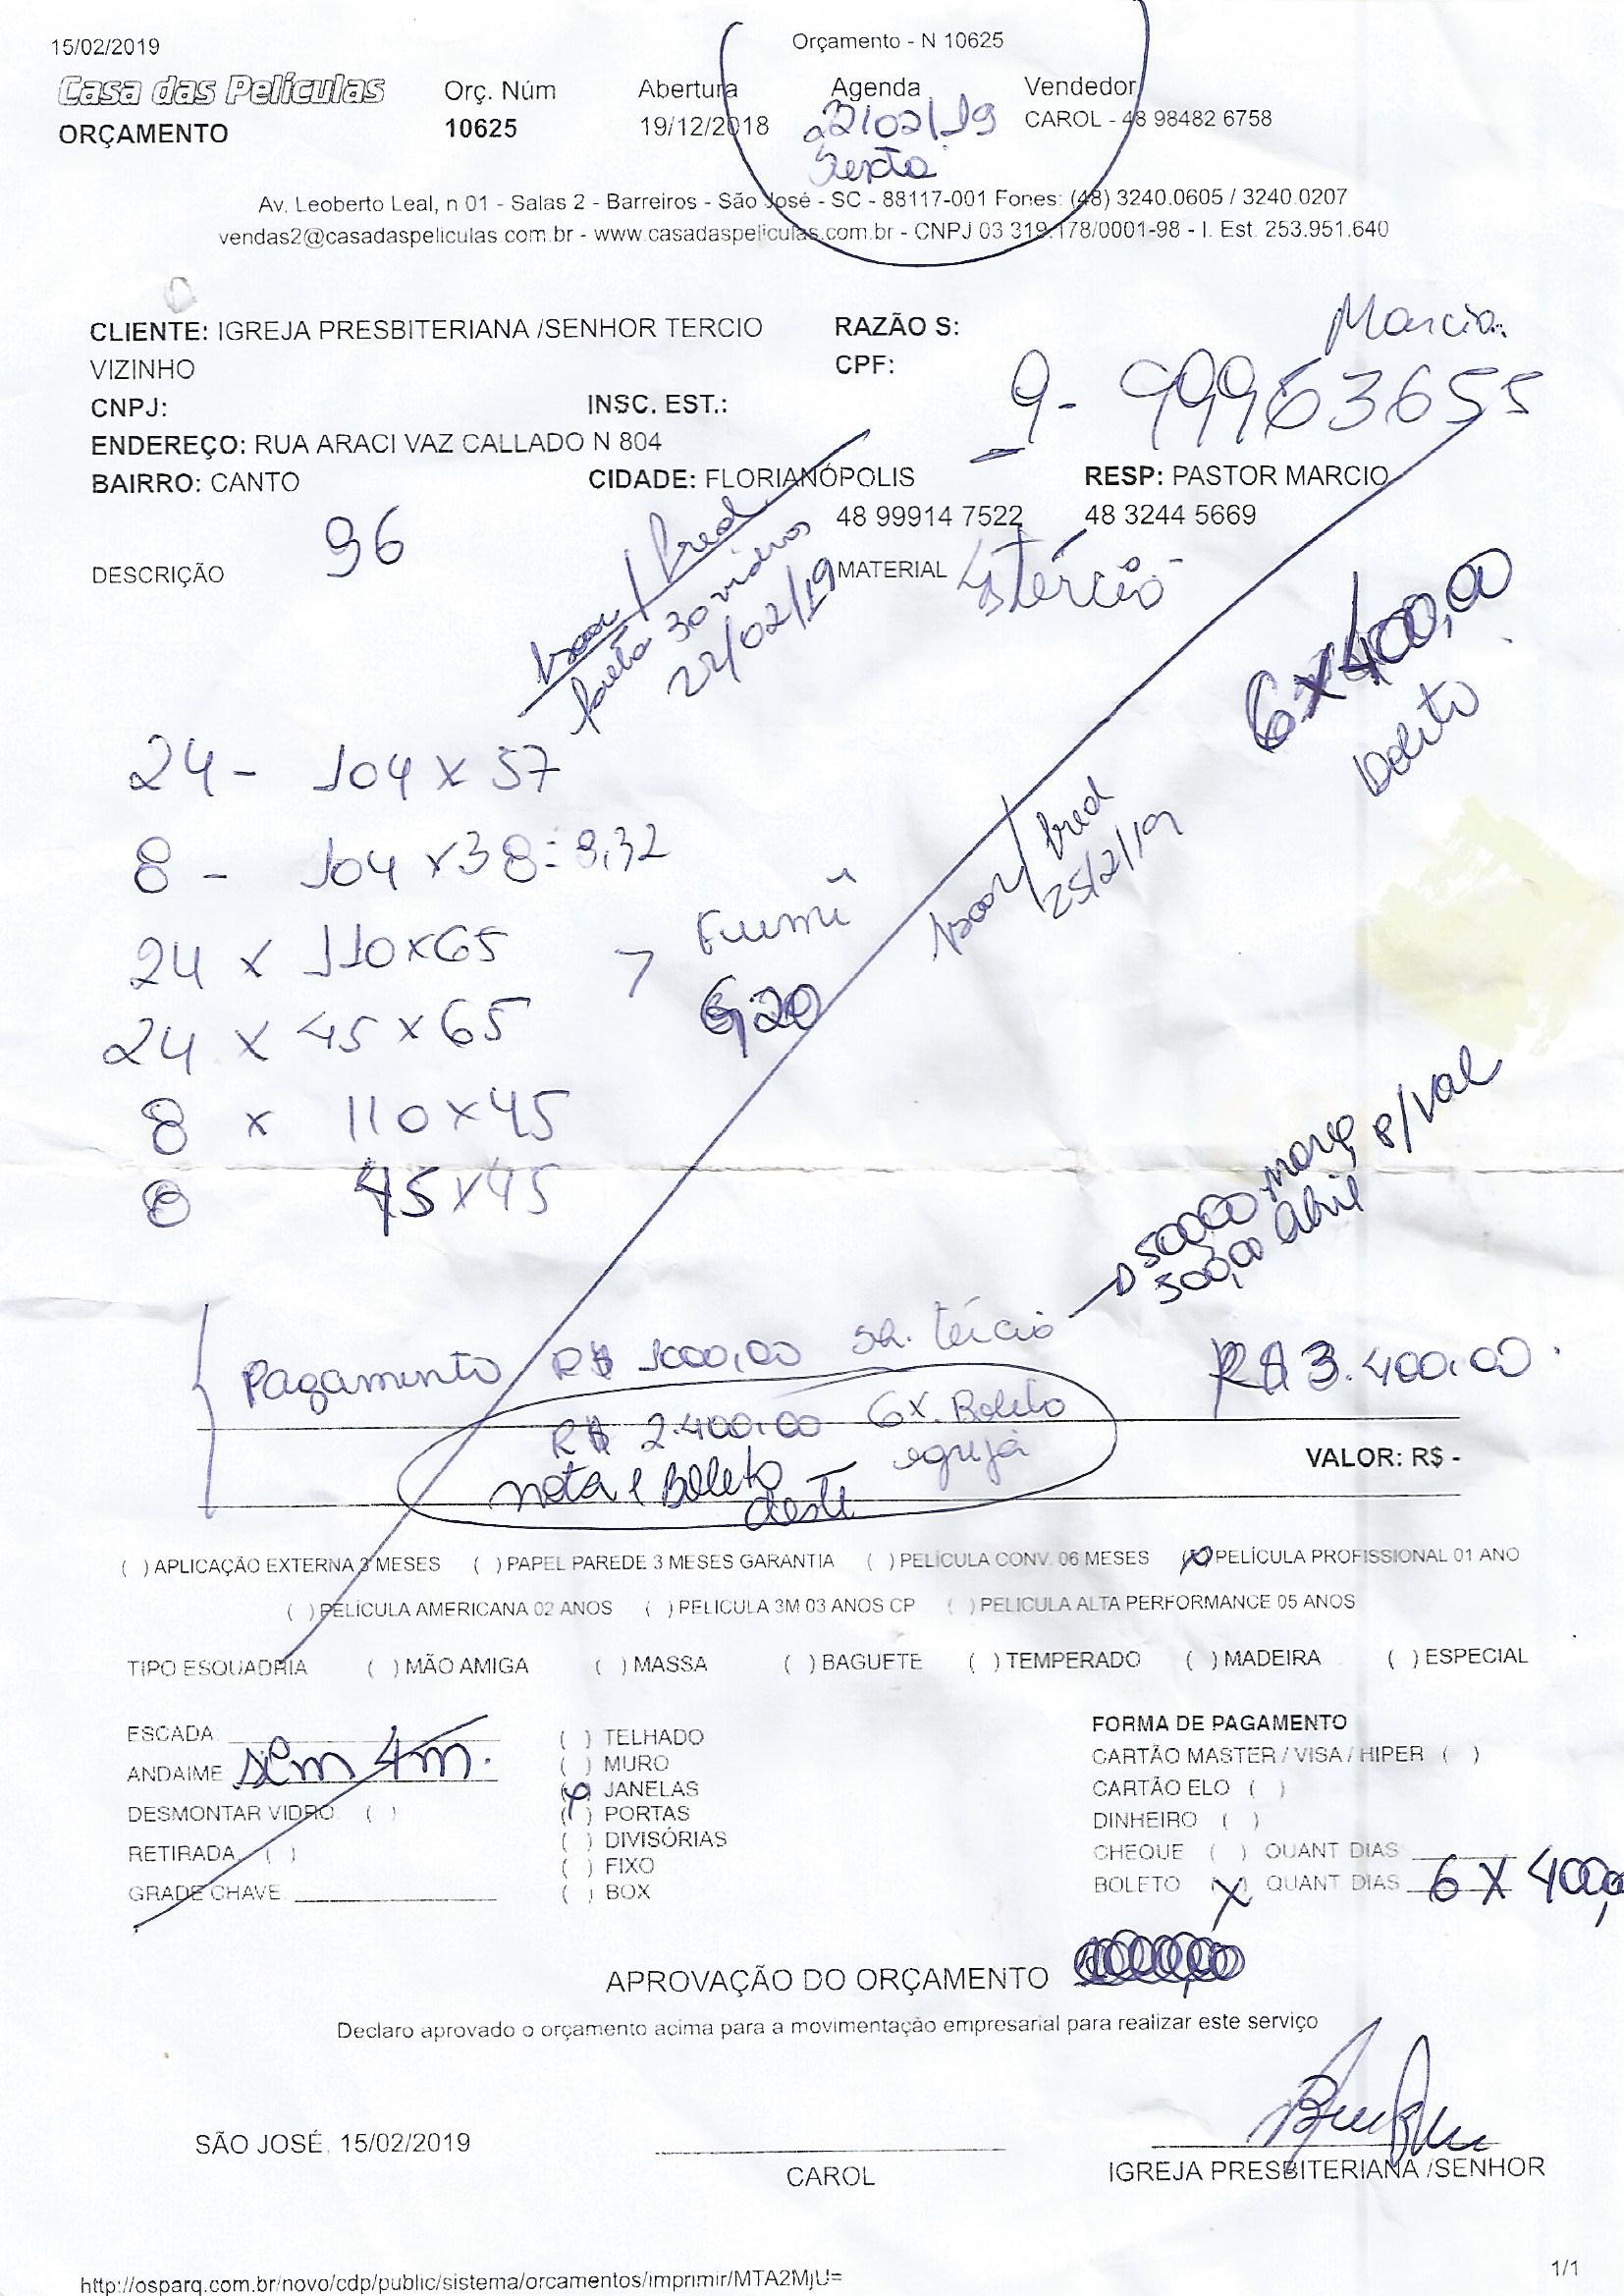 15/02/2019
Orçamento - N 10625
Casa das Películas
ORÇAMENTO
Orç. Núm
10625
Abertura
19/12/2018
Agenda
22/02/19
Sexta
Vendedor
CAROL - 48 98482 6758
Av. Leoberto Leal, n 01 - Salas 2 - Barreiros - São José - SC - 88117-001 Fones: (48) 3240.0605 / 3240.0207
vendas2@casadaspeliculas.com.br - www.casadaspeliculas.com.br - CNPJ 03 319.178/0001-98 - I. Est. 253.951.640
CLIENTE: IGREJA PRESBITERIANA /SENHOR TERCIO
VIZINHO
RAZÃO S:
Marcia
CPF:
9- 99963655
CNPJ:
INSC. EST.:
ENDEREÇO: RUA ARACI VAZ CALLADO N 804
BAIRRO: CANTO
CIDADE: FLORIANÓPOLIS
RESP: PASTOR MARCIO
48 99914 7522
48 3244 5669
96
DESCRIÇÃO
MATERIAL
tércio
/ fred
30 vidros
22/02/19
6x400,00
24 - 104 x 57
8 - 104 x 38 = 3,32
24 x 110x65
Fumê
G,20
24 x 45 x 65
8 x 110x45
8 45x45
/ fred
25/2/19
500,00 março p/Val
500,00 abril
Pagamento R$ 1000,00 sr. tércio
R$ 3.400,00
R$ 2.400,00 6x. Boleto
igreja
nota e Boleto
deste
VALOR: R$ -
( ) APLICAÇÃO EXTERNA 3 MESES ( ) PAPEL PAREDE 3 MESES GARANTIA ( ) PELÍCULA CONV. 06 MESES (X) PELÍCULA PROFISSIONAL 01 ANO
( ) PELÍCULA AMERICANA 02 ANOS ( ) PELICULA 3M 03 ANOS CP ( ) PELICULA ALTA PERFORMANCE 05 ANOS
TIPO ESQUADRIA ( ) MÃO AMIGA ( ) MASSA ( ) BAGUETE ( ) TEMPERADO ( ) MADEIRA ( ) ESPECIAL
ESCADA
ANDAIME sem 4m.
DESMONTAR VIDRO ( )
RETIRADA ( )
GRADE CHAVE
( ) TELHADO
( ) MURO
(X) JANELAS
( ) PORTAS
( ) DIVISÓRIAS
( ) FIXO
( ) BOX
FORMA DE PAGAMENTO
CARTÃO MASTER / VISA / HIPER ( )
CARTÃO ELO ( )
DINHEIRO ( )
CHEQUE ( ) QUANT DIAS
BOLETO (X) QUANT DIAS 6 X 400,00
APROVAÇÃO DO ORÇAMENTO
Declaro aprovado o orçamento acima para a movimentação empresarial para realizar este serviço
SÃO JOSÉ, 15/02/2019
CAROL
IGREJA PRESBITERIANA /SENHOR
http://osparq.com.br/novo/cdp/public/sistema/orcamentos/imprimir/MTA2MjU=
1/1